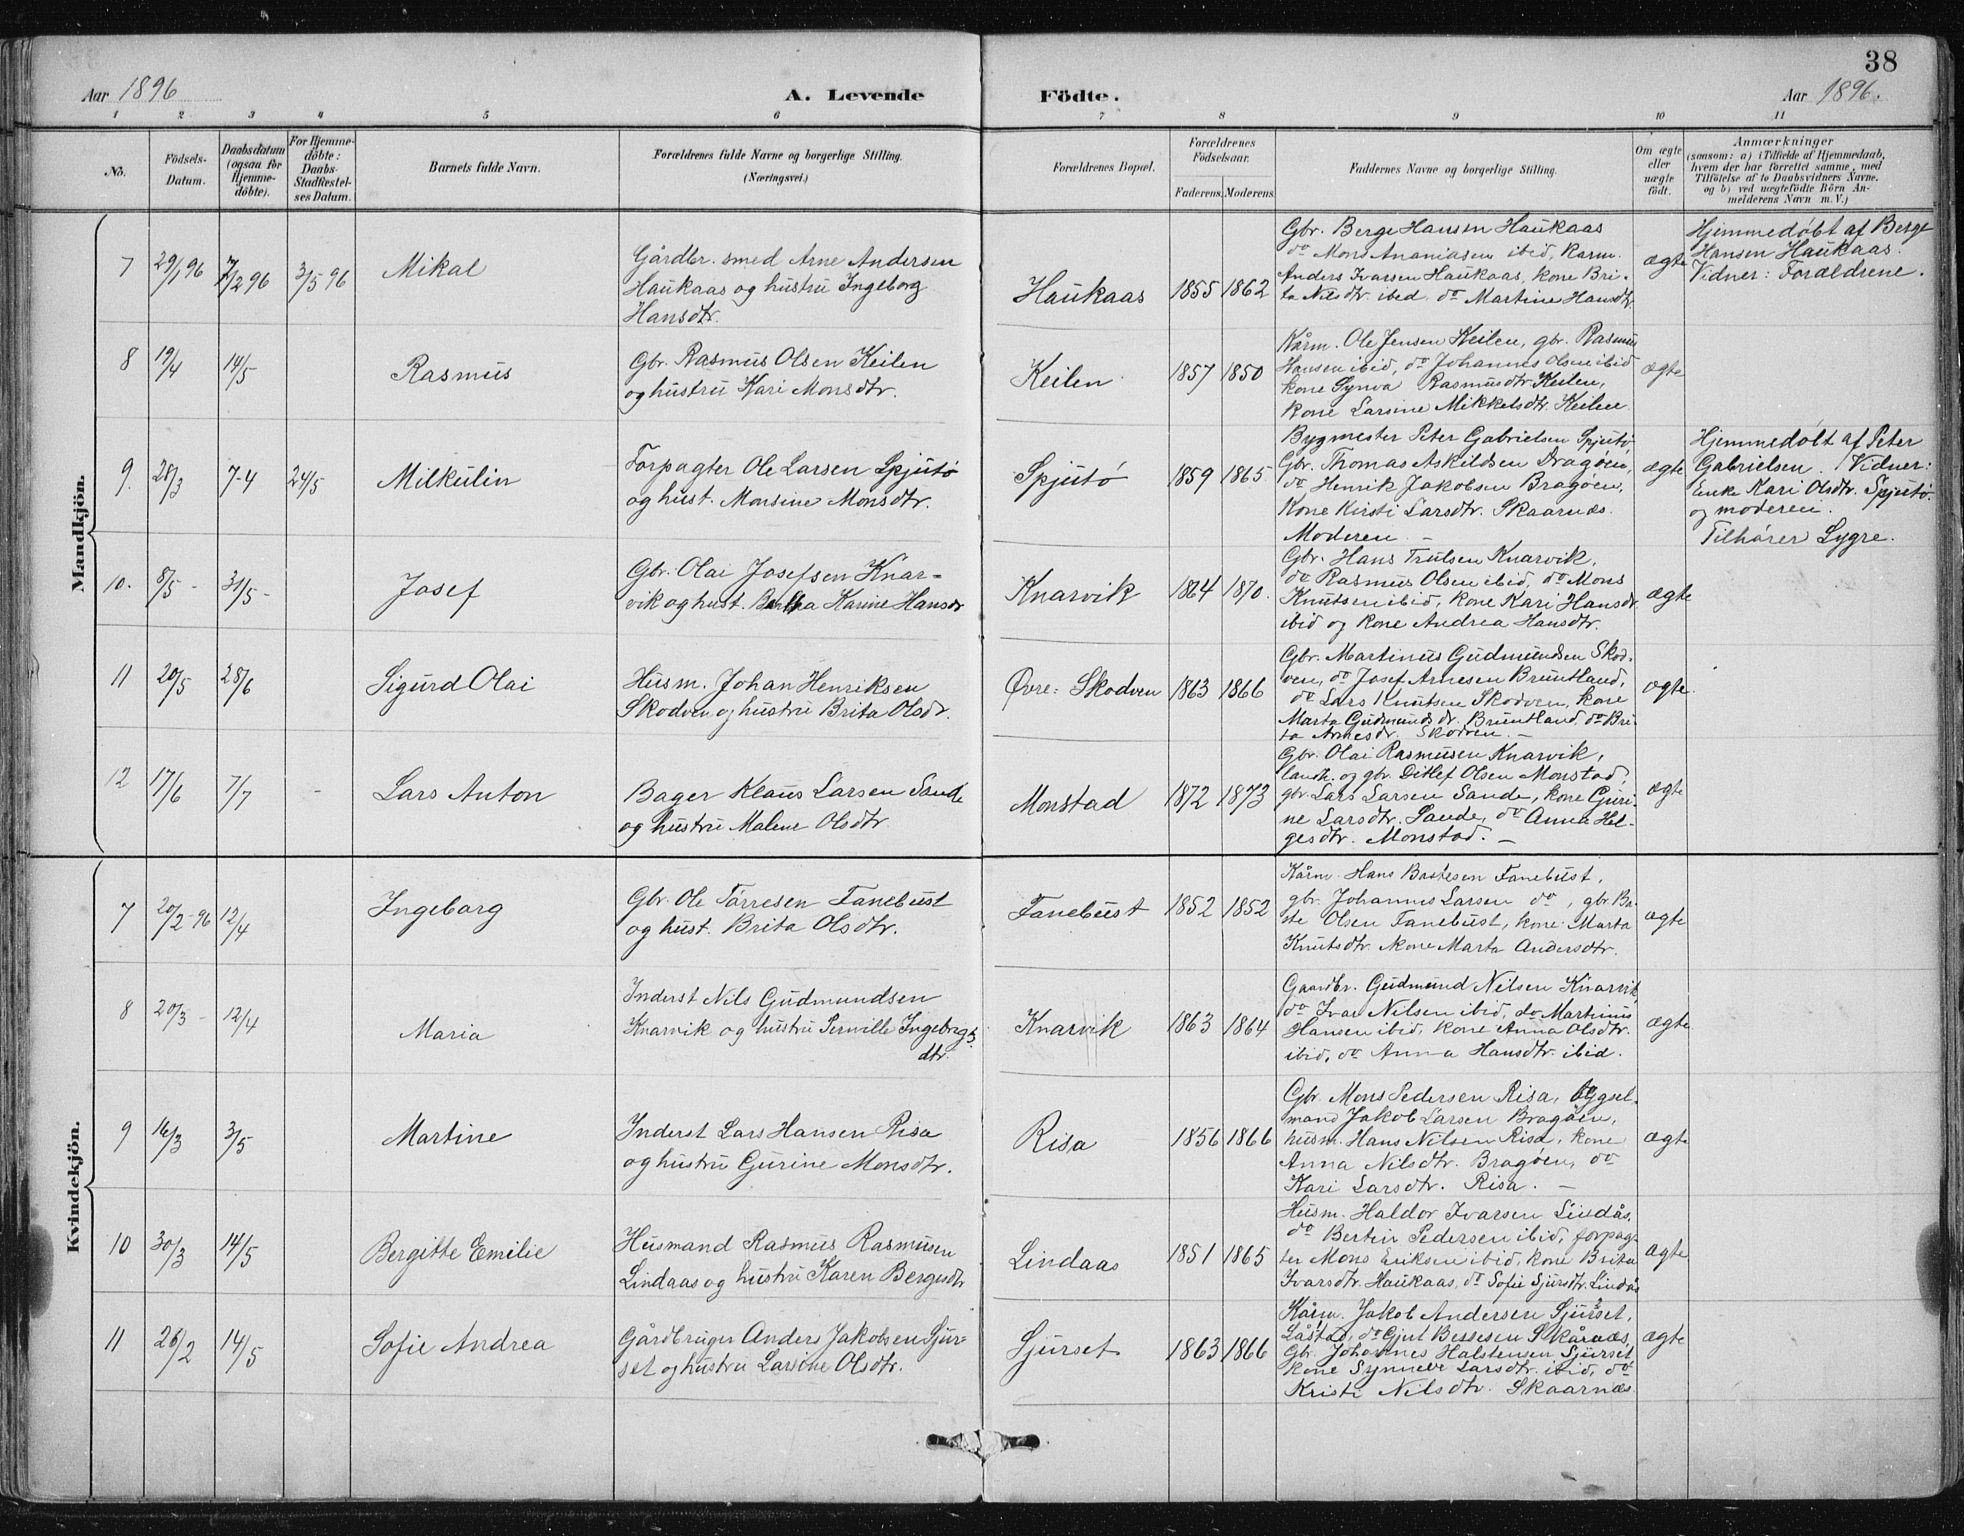 38
Aar 1896
A. Levende Födte.
Aar 1896.
1 2 3 4 5 6 7 8 9 10 11
No.
Födsels-
Datum.
Daabsdatum
(ogsaa for
Hjemme-
döbte).
For Hjemme-
döbte:
Daabs-
Stadfæstel-
ses Datum.
Barnets fulde Navn.
Forældrenes fulde Navne og borgerlige Stilling.
(Næringsvei.)
Forældrenes Bopæl.
Forældrenes
Födselsaar.
Faderens. Moderens.
Faddernes Navne og borgerlige Stilling.
Om ægte
eller
uægte
födt.
Anmærkninger
(saasom: a) i Tilfælde af Hjemmedaab,
hvem der har forrettet samme, med
Tilföielse af to Daabsvidners Navne.
og b) ved uægtefödte Börn An-
melderens Navn m. V.)
Mandkjön.
7 29/1 96 7/2 96 3/5 96 Mikal
Gårdbr. smed Arne Andersen
Haukaas og hustru Ingeborg
Hansdtr.
Haukaas 1855 1862
Gbr. Berge Hansen Haukaas
do Mons Ananiasen ibid, Karm.
Anders Ivarsen Haukaas, kone Bri-
ta Nilsdtr. ibid. do Martine Hansdtr.
ægte
Hjemmedøbt af Berge
Hansen Haukaas.
Vidner: Forældrene.
8 19/4 14/5 Rasmus
Gbr. Rasmus Olsen Keilen
og hustru Kari Monsdtr.
Keilen 1857 1850
Kårm. Ole Jensen Keilen, gbr. Rasmus
Hansen ibid, do Johannes Olsen ibid
kone Synva Rasmusdtr. Keilen,
kone Larsine Mikkelsdtr. Keilen.
ægte
9. 28/3 7-4 24/5 Milkulin
Forpagter Ole Larsen Spjutø
og hust. Monsine Monsdtr.
Spjutø 1859 1865
Bygmester Peter Gabrielsen Spjutø,
Gbr. Thomas Askildsen Dragøen,
do Henrik Jakobsen Bragøen,
Kone Kirsti Larsdtr. Skaarnæs.
Moderen —
ægte
Hjemmedøbt af Peter
Gabrielsen. Vidner:
Enke Kari Olsdtr. Spjutø
og moderen.
Tilhører Lygre.
10. 8/5 - 31/5 - Josef
Gbr. Olai Josefsen Knar-
vik og hust. Bertha Karine Hansdr
Knarvik 1864 1870.
Gbr. Hans Trulsen Knarvik,
do Rasmus Olsen ibid, do Mons
Knutsen ibid, kone Kari Hansdr.
ibid og kone Andrea Hansdtr.
ægte
11 20/5 28/6 Sigurd Olai
Husm. Johan Henriksen
Skodven og hustru Brita Olsdr.
Øvre: Skodven 1863 1866
Gbr. Martinus Gudmundsen Skod-
ven, do Josef Arnesen Bruntland,
do Lars Knutsen Skodven, kone
Marta Gudmundsdr. Bruntland, do Bri-
ta Arnesdr. Skodven. —
ægte.
12 17/6 7/7 - Lars Anton
Bager Klaus Larsen Sande
og hustru Malene Olsdtr.
Monstad 1872 1873
Gbr. Olai Rasmusen Knarvik,
landh. og gbr. Ditlef Olsen Monstad,
gbr. Lars Larsen Sande, kone Guri-
ne Larsdtr. Sande, do Anna Hel-
gesdtr. Monstad. —
ægte
Kvindekjön.
7 20/2-96 12/4 Ingeborg
Gbr. Ole Tørresen Fanebust
og hust. Brita Olsdtr.
Fanebust 1852 1852
Kårm. Hans Bastesen Fanebust,
gbr. Johannes Larsen do, gbr. Ba-
ste Olsen Fanebust, kone Marta
Knutsdtr. kone Marta Andersdtr.
ægte
8 20/3 - 12/4 Maria
Inderst Nils Gudmundsen
Knarvik og hustru Pernille Ingebrigts
dtr.
Knarvik 1863 1864
Gaardbr. Gudmund Nilsen Knarvik
do Ivar Nilsen ibid, do Martinus
Hansen ibid, kone Anna Olsdtr.
ibid, do Anna Hansdtr. ibid.
ægte
9 16/3 3/5 Martine
Inderst Lars Hansen Risa
og hustru Gurine Monsdtr.
Risa 1856 1866
Gbr. Mons Pedersen Risa, bygsel-
mand Jakob Larsen Bragøen,
husm. Hans Nilsen Risa, kone
Anna Nilsdtr. Bragøen, do
Kari Larsdtr. Risa. —
ægte
10 30/3 14/5 Bergitte Emilie
Husmand Rasmus Rasmusen
Lindaas og hustru Karen Bergesdtr
Lindaas 1851 1865
Husm. Haldor Ivarsen Lindås,
do Bertin Pedersen ibid, forpag-
ter Mons Eriksen ibid, kone Brita
Ivarsdtr. Haukaas, do Sofie Sjursdtr. Lindås
ægte
11 26/2 14/5 Sofie Andrea
Gårdbruger Anders Jakobsen Sjur-
set og hustru Larsine Olsdtr.
Sjurset 1863 1866
Kårm. Jakob Andersen Sjurset,
do Gjut Bessesen Skårnæs,
Gbr. Johannes Halstensen Sjurset
kone Synneve Larsdtr. ibid, do
Kristi Nilsdtr. Skaarnæs
ægte